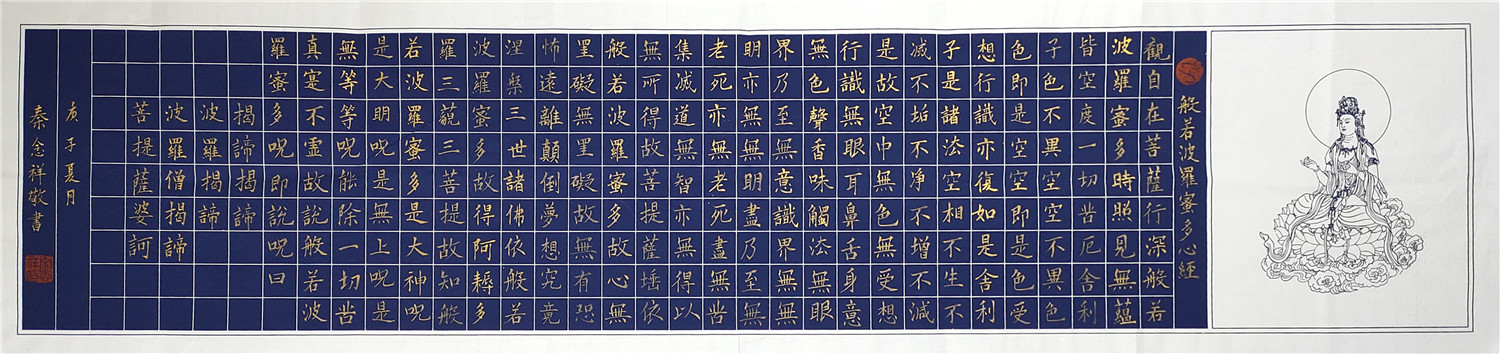 般若波羅蜜多心經
觀自在菩薩行深般若
波羅蜜多時照見無蘊
皆空度一切苦厄舍利
子色不異空空不異色
色即是空空即是色受
想行識亦復如是舍利
子是諸法空相不生不
滅不垢不淨不增不減
是故空中無色無受想
行識無眼耳鼻舌身意
無色聲香味觸法無眼
界乃至無意識界無無
明亦無無明盡乃至無
老死亦無老死盡無苦
集滅道無智亦無得以
無所得故菩提薩埵依
般若波羅蜜多故心無
罣礙無罣礙故無有恐
怖遠離顛倒夢想究竟
涅槃三世諸佛依般若
波羅蜜多故得阿耨多
羅三藐三菩提故知般
若波羅蜜多是大神呪
是大明呪是無上呪是
無等等呪能除一切苦
真實不虛故說般若波
羅蜜多呪即說呪曰
揭諦揭諦
波羅揭諦
波羅僧揭諦
菩提薩婆訶
庚子夏月
秦念祥敬書